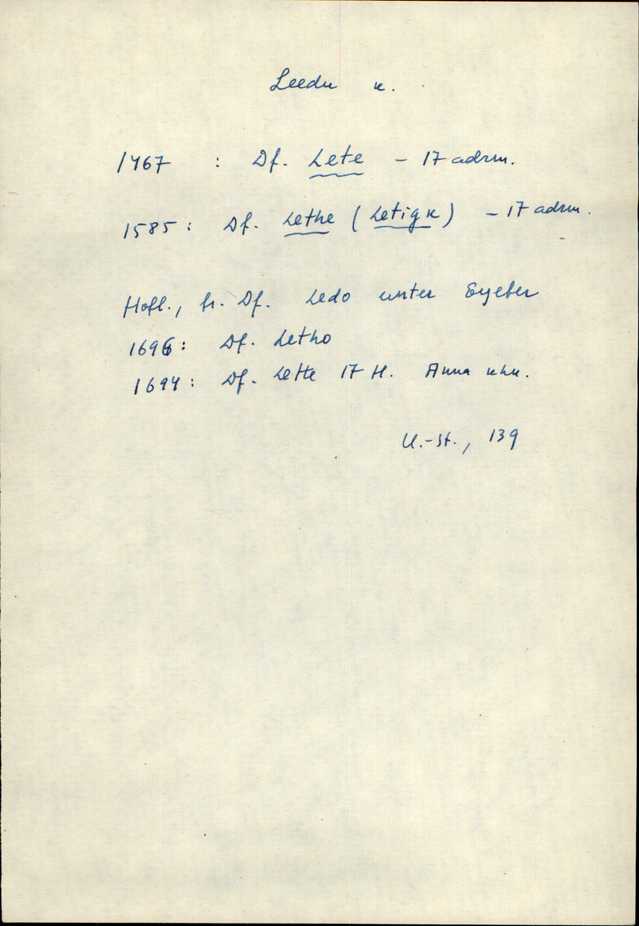 Leedu k.
1467 : Df. Lete - 17 adrm.
1585 : Df. Lethe (Letigk) - 17 adrm.
Hofl., fr. Df. Ledo unter
1696 : Df. Letho
1694 : Df. Lette 17 H. Anna khk.
U.-St., 139